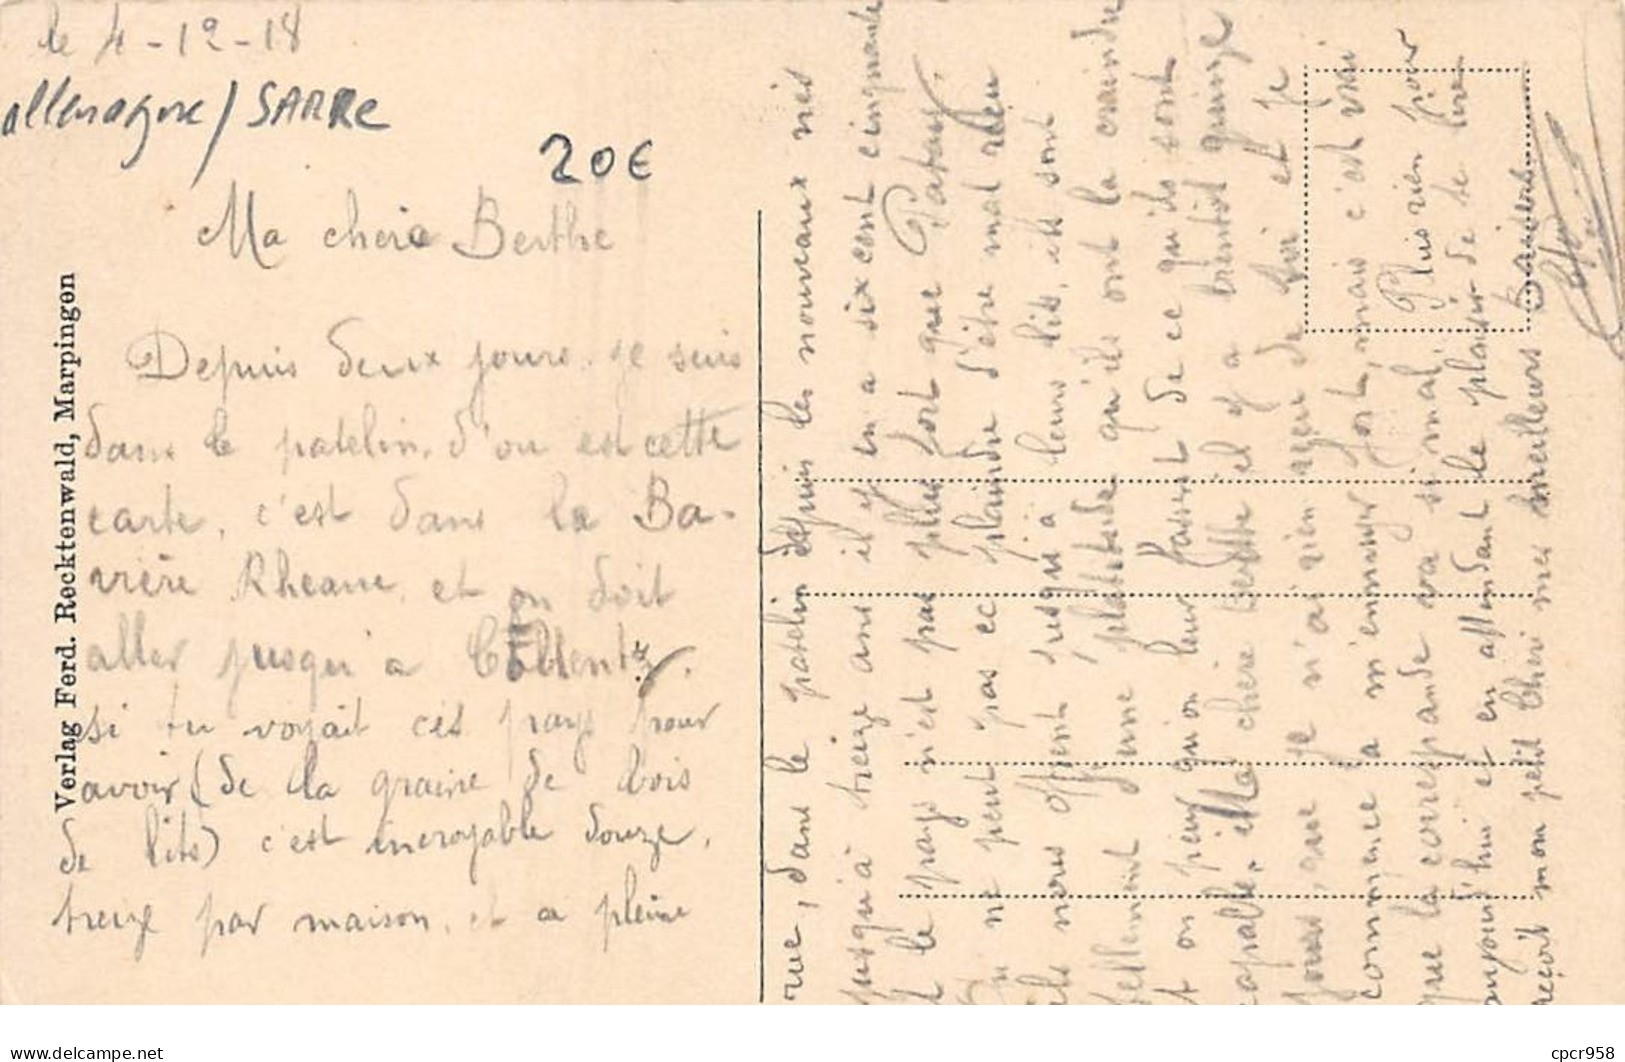 le 4-12-18
allemagne / SARRE
20€
Ma chère Berthe
Depuis deux jours je suis
dans le patelin. d'ou est cette
carte, c'est dans la Ba-
vière Rheane, et on doit
aller jusqu'a Coblentz.
si tu voyait ces pays pour
avoir (de la graine de bois
de lits) c'est incroyable douze,
treize par maison, et a pleine
rue, dans le patelin depuis les nouveaux nés
jusqu'à treize ans il y en a six cent cinquante
et le pays n'est pas plus fort que Patay.
On ne peut pas ce plaindre d'être mal reçu
ils nous offrent jusqu'a leurs lits, ils sont
tellement d'une platitude qu'ils ont la crainde
et on peur qu'on leur fassent de ce qu'ils sont
capable. Ma chère Berthe il y a bientôt quinze
jours, que je n'ai rien reçu de toi et je
commence à m'ennuyer fort, mais c'est vrai
que la correspande va si mal. Plus rien pour
aujourd'hui et en attendant le plaisir de te lire
reçoit mon petit Cheri mes meilleurs Baisers
Verlag Ferd. Recktenwald, Marpingen
https://www.delcampe.net
cpcr958